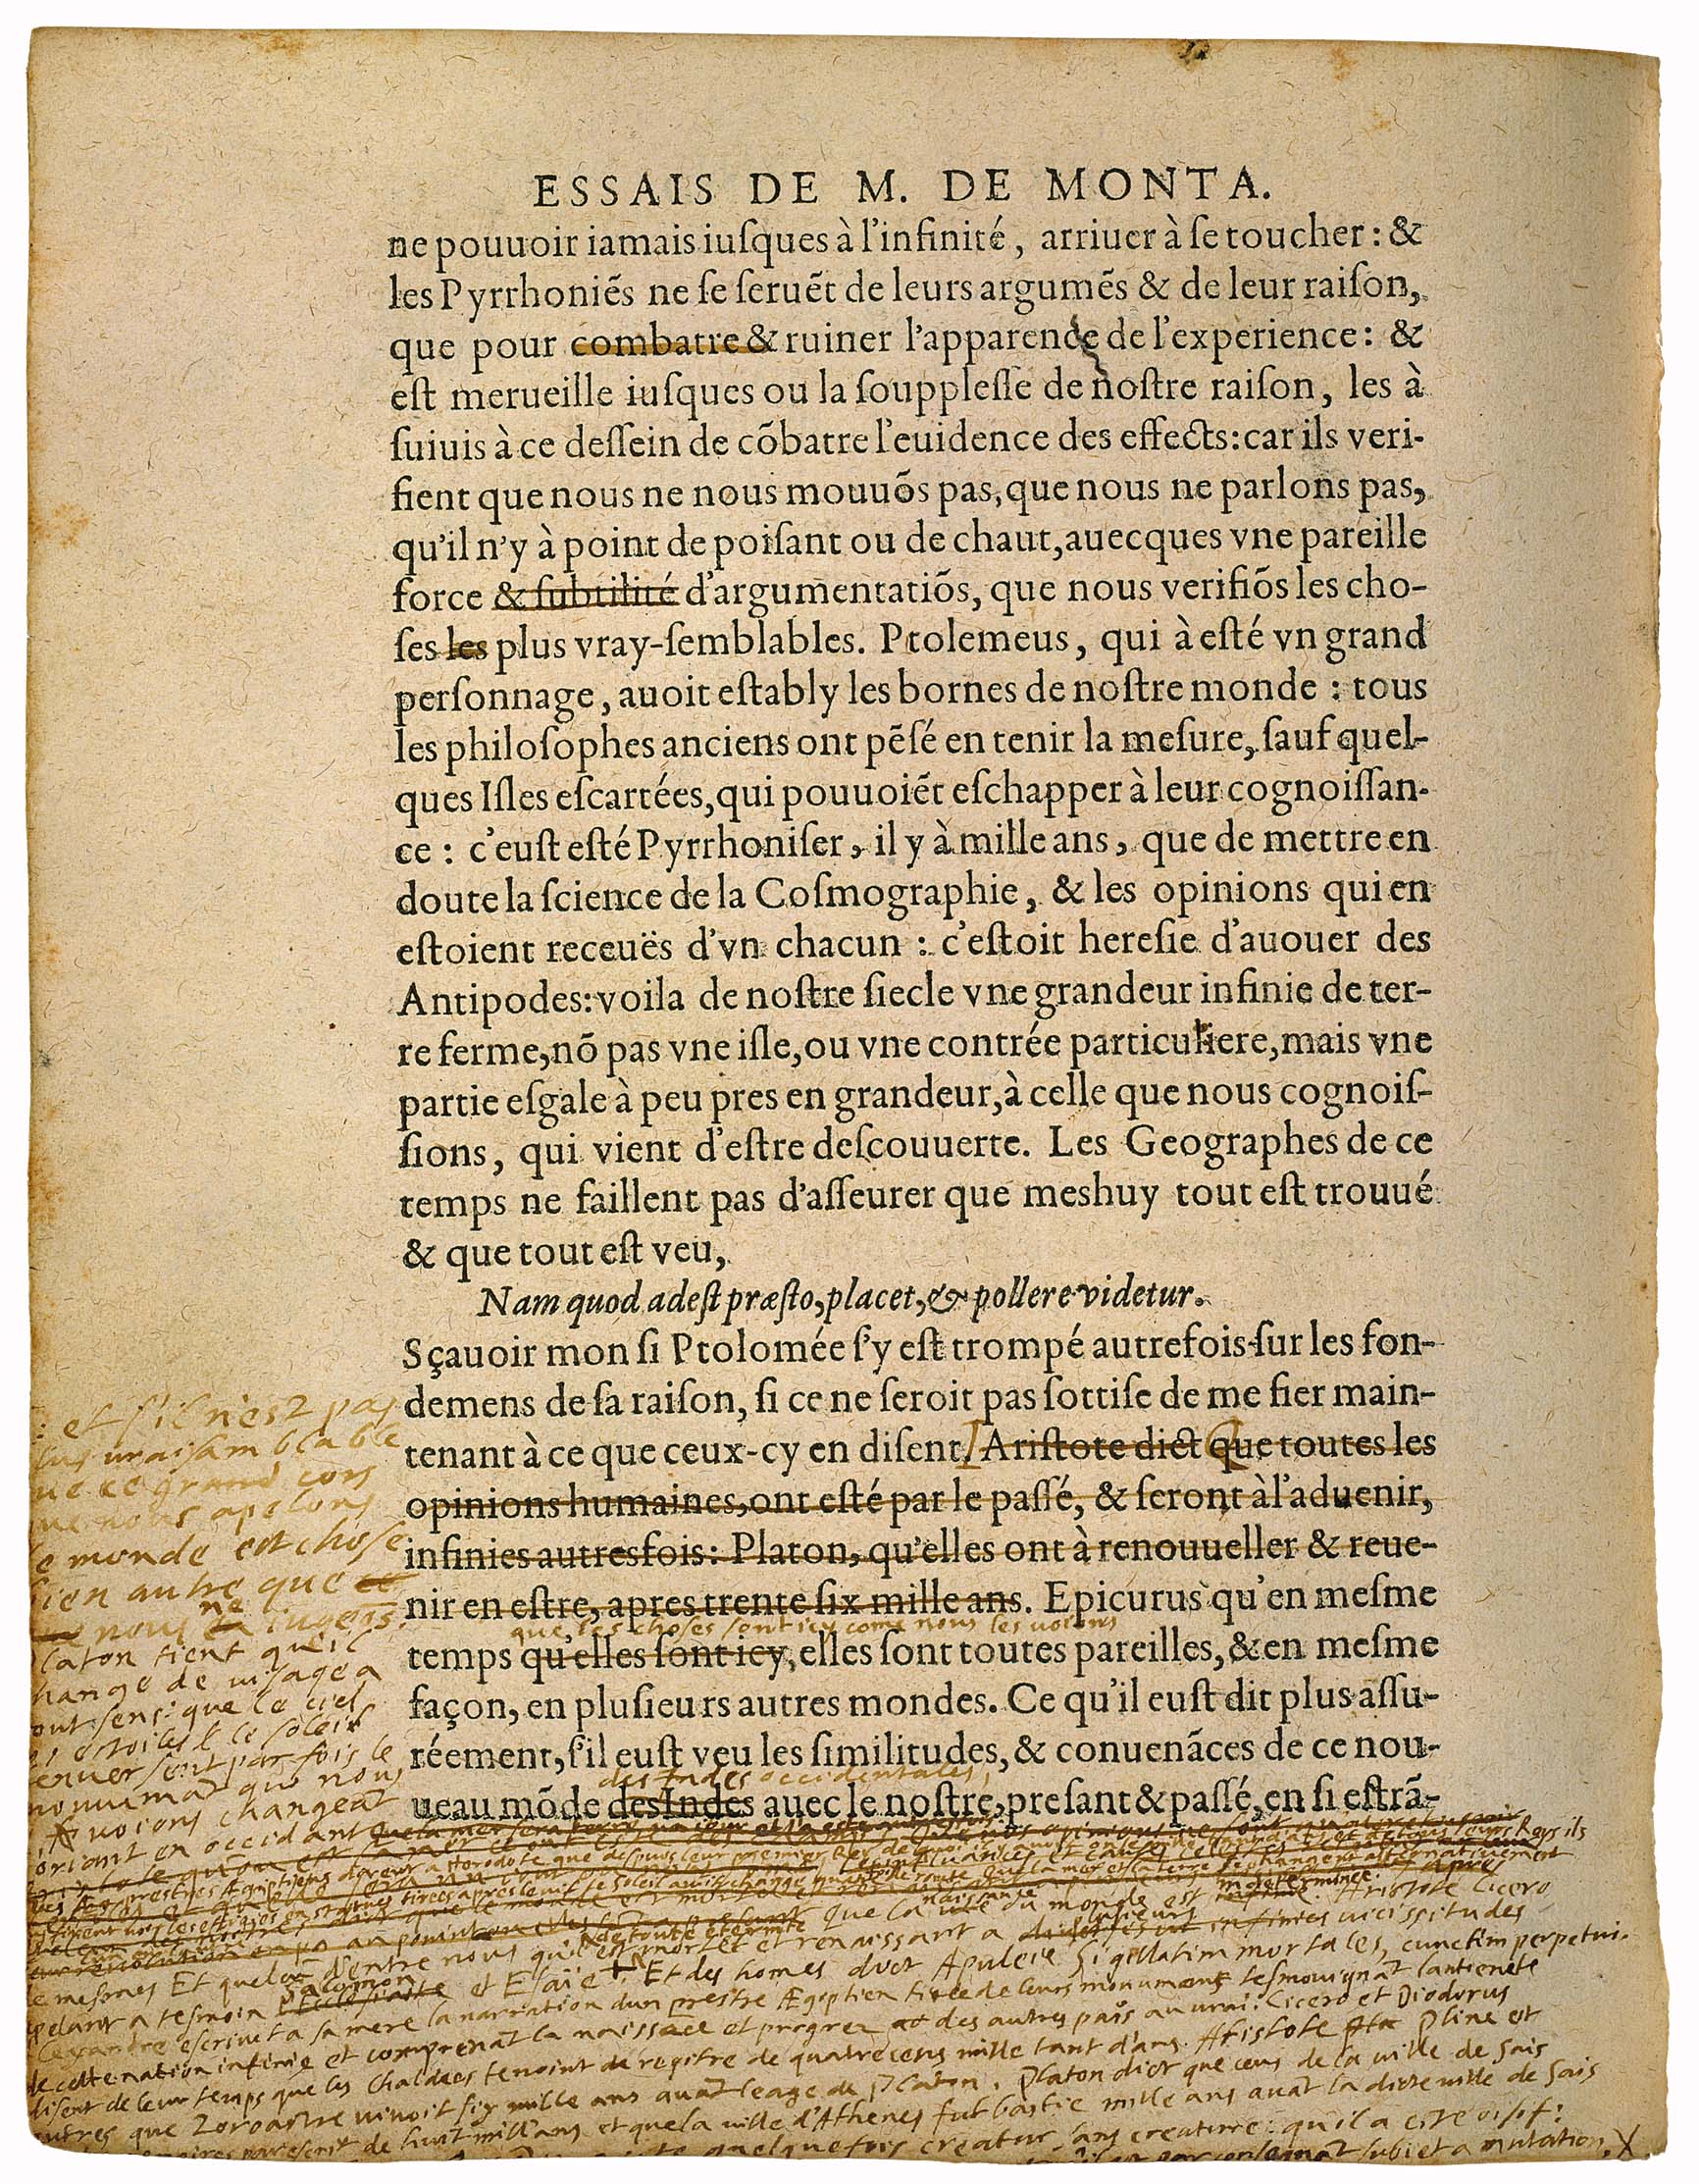 ESSAIS DE M. DE MONTA.
ne pouuoir iamais iuſques à l'infinité, arriuer à ſe toucher: &
les Pyrrhoniẽs ne ſe ſeruẽt de leurs argumẽs & de leur raiſon,
que pour combatre & ruiner l'apparence de l'experience: &
eſt merueille iuſques ou la ſoupplesſe de noſtre raiſon, les à
ſuiuis à ce deſſein de cõbatre l'euidence des effects: car ils veri-
fient que nous ne nous mouuõs pas, que nous ne parlons pas,
qu'il n'y à point de poiſant ou de chaut, auecques vne pareille
force & ſubtilité d'argumentatiõs, que nous verifiõs les cho-
ſes les plus vray-ſemblables. Ptolemeus, qui à eſté vn grand
perſonnage, auoit eſtably les bornes de noſtre monde: tous
les philoſophes anciens ont pẽſé en tenir la meſure, ſauf quel-
ques Iſles eſcartées, qui pouuoiẽt eſchapper à leur cognoiſſan-
ce: c'euſt eſté Pyrrhoniſer, il y à mille ans, que de mettre en
doute la ſcience de la Coſmographie, & les opinions qui en
eſtoient receuës d'vn chacun: c'eſtoit hereſie d'auouer des
Antipodes: voila de noſtre ſiecle vne grandeur infinie de ter-
re ferme, nõ pas vne iſle, ou vne contrée particuliere, mais vne
partie eſgale à peu pres en grandeur, à celle que nous cognoiſ-
ſions, qui vient d'eſtre deſcouuerte. Les Geographes de ce
temps ne faillent pas d'aſſeurer que meshuy tout eſt trouué
& que tout eſt veu,
Nam quod adeſt præſto, placet, & pollere videtur.
Sçauoir mon ſi Ptolomée ſ'y eſt trompé autrefois ſur les fon-
demens de ſa raiſon, ſi ce ne ſeroit pas ſottiſe de me fier main-
tenant à ce que ceux-cy en diſent. Ariſtote dict que toutes les
opinions humaines, ont eſté par le paſſé, & ſeront à l'aduenir,
infinies autresfois: Platon, qu'elles ont à renouueller & reue-
nir en eſtre, apres trente ſix mille ans. Epicurus qu'en meſme
que les choses sont icy come nous les voions
temps qu'elles ſont icy, elles ſont toutes pareilles, & en meſme
façon, en pluſieurs autres mondes. Ce qu'il euſt dit plus aſſu-
réement, ſ'il euſt veu les ſimilitudes, & conuenãces de ce nou-
des Indes occidentales,
ueau mõde des Indes auec le noſtre, preſant & paſſé, en ſi eſtrã-
: et s'il n'est pas
lus uraisamblable
ue ce grand cors
que nous apelons
le monde est chose
bien autre que
nous ne iugeons.
Platon tient qu'il
change de uisage a
tout sens: que le ciel
les estoiles & le soleil
renuersent par fois le
mouuemãt que nous
y uoions changeãt
l'oriant en occidant
Que la naissance du monde est indeterminee. Aristote Cicero
d'entre nous qu'il est de toute eternité mortel et renaissant a plusieurs uicissitudes
apelant a tesmoin Salomon et Esaïe. Et des homes dict Apuleïe Sigillatim mortales, cunctim perpetui.
Alexandre escriuit a sa mere la narration d'un prestre Ægyptien tiree de leurs monumens tesmouignãt l'antienete
de cette nation infinie et comprenãt la naissãce et progrez des autres païs au urai. Cicero et Diodorus
disent de leur temps que les Chaldees tenoint de regitre de quatre cens mille tant d'ans. Aristote Pline et
autres que Zoroastre uiuoit six mille ans auãt l'eage de Platon. Platon dict que ceus de la uille de Sais
ont memoires par escrit de huit mill'ans et que la uille d'Athenes fut bastie mille ans auãt la dicte uille de Sais
quelquefois creatur sans creature: qu'il a esté oisif:
par consequãt subiet a mutation. X